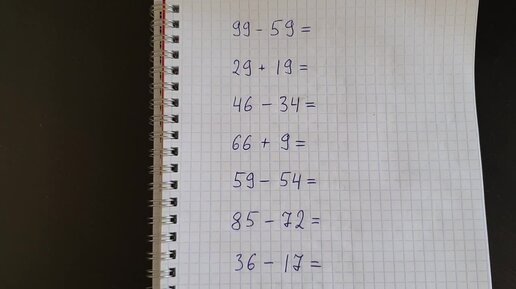 99 - 59 =
29 + 19 =
46 - 34 =
66 + 9 =
59 - 54 =
85 - 72 =
36 - 17 =